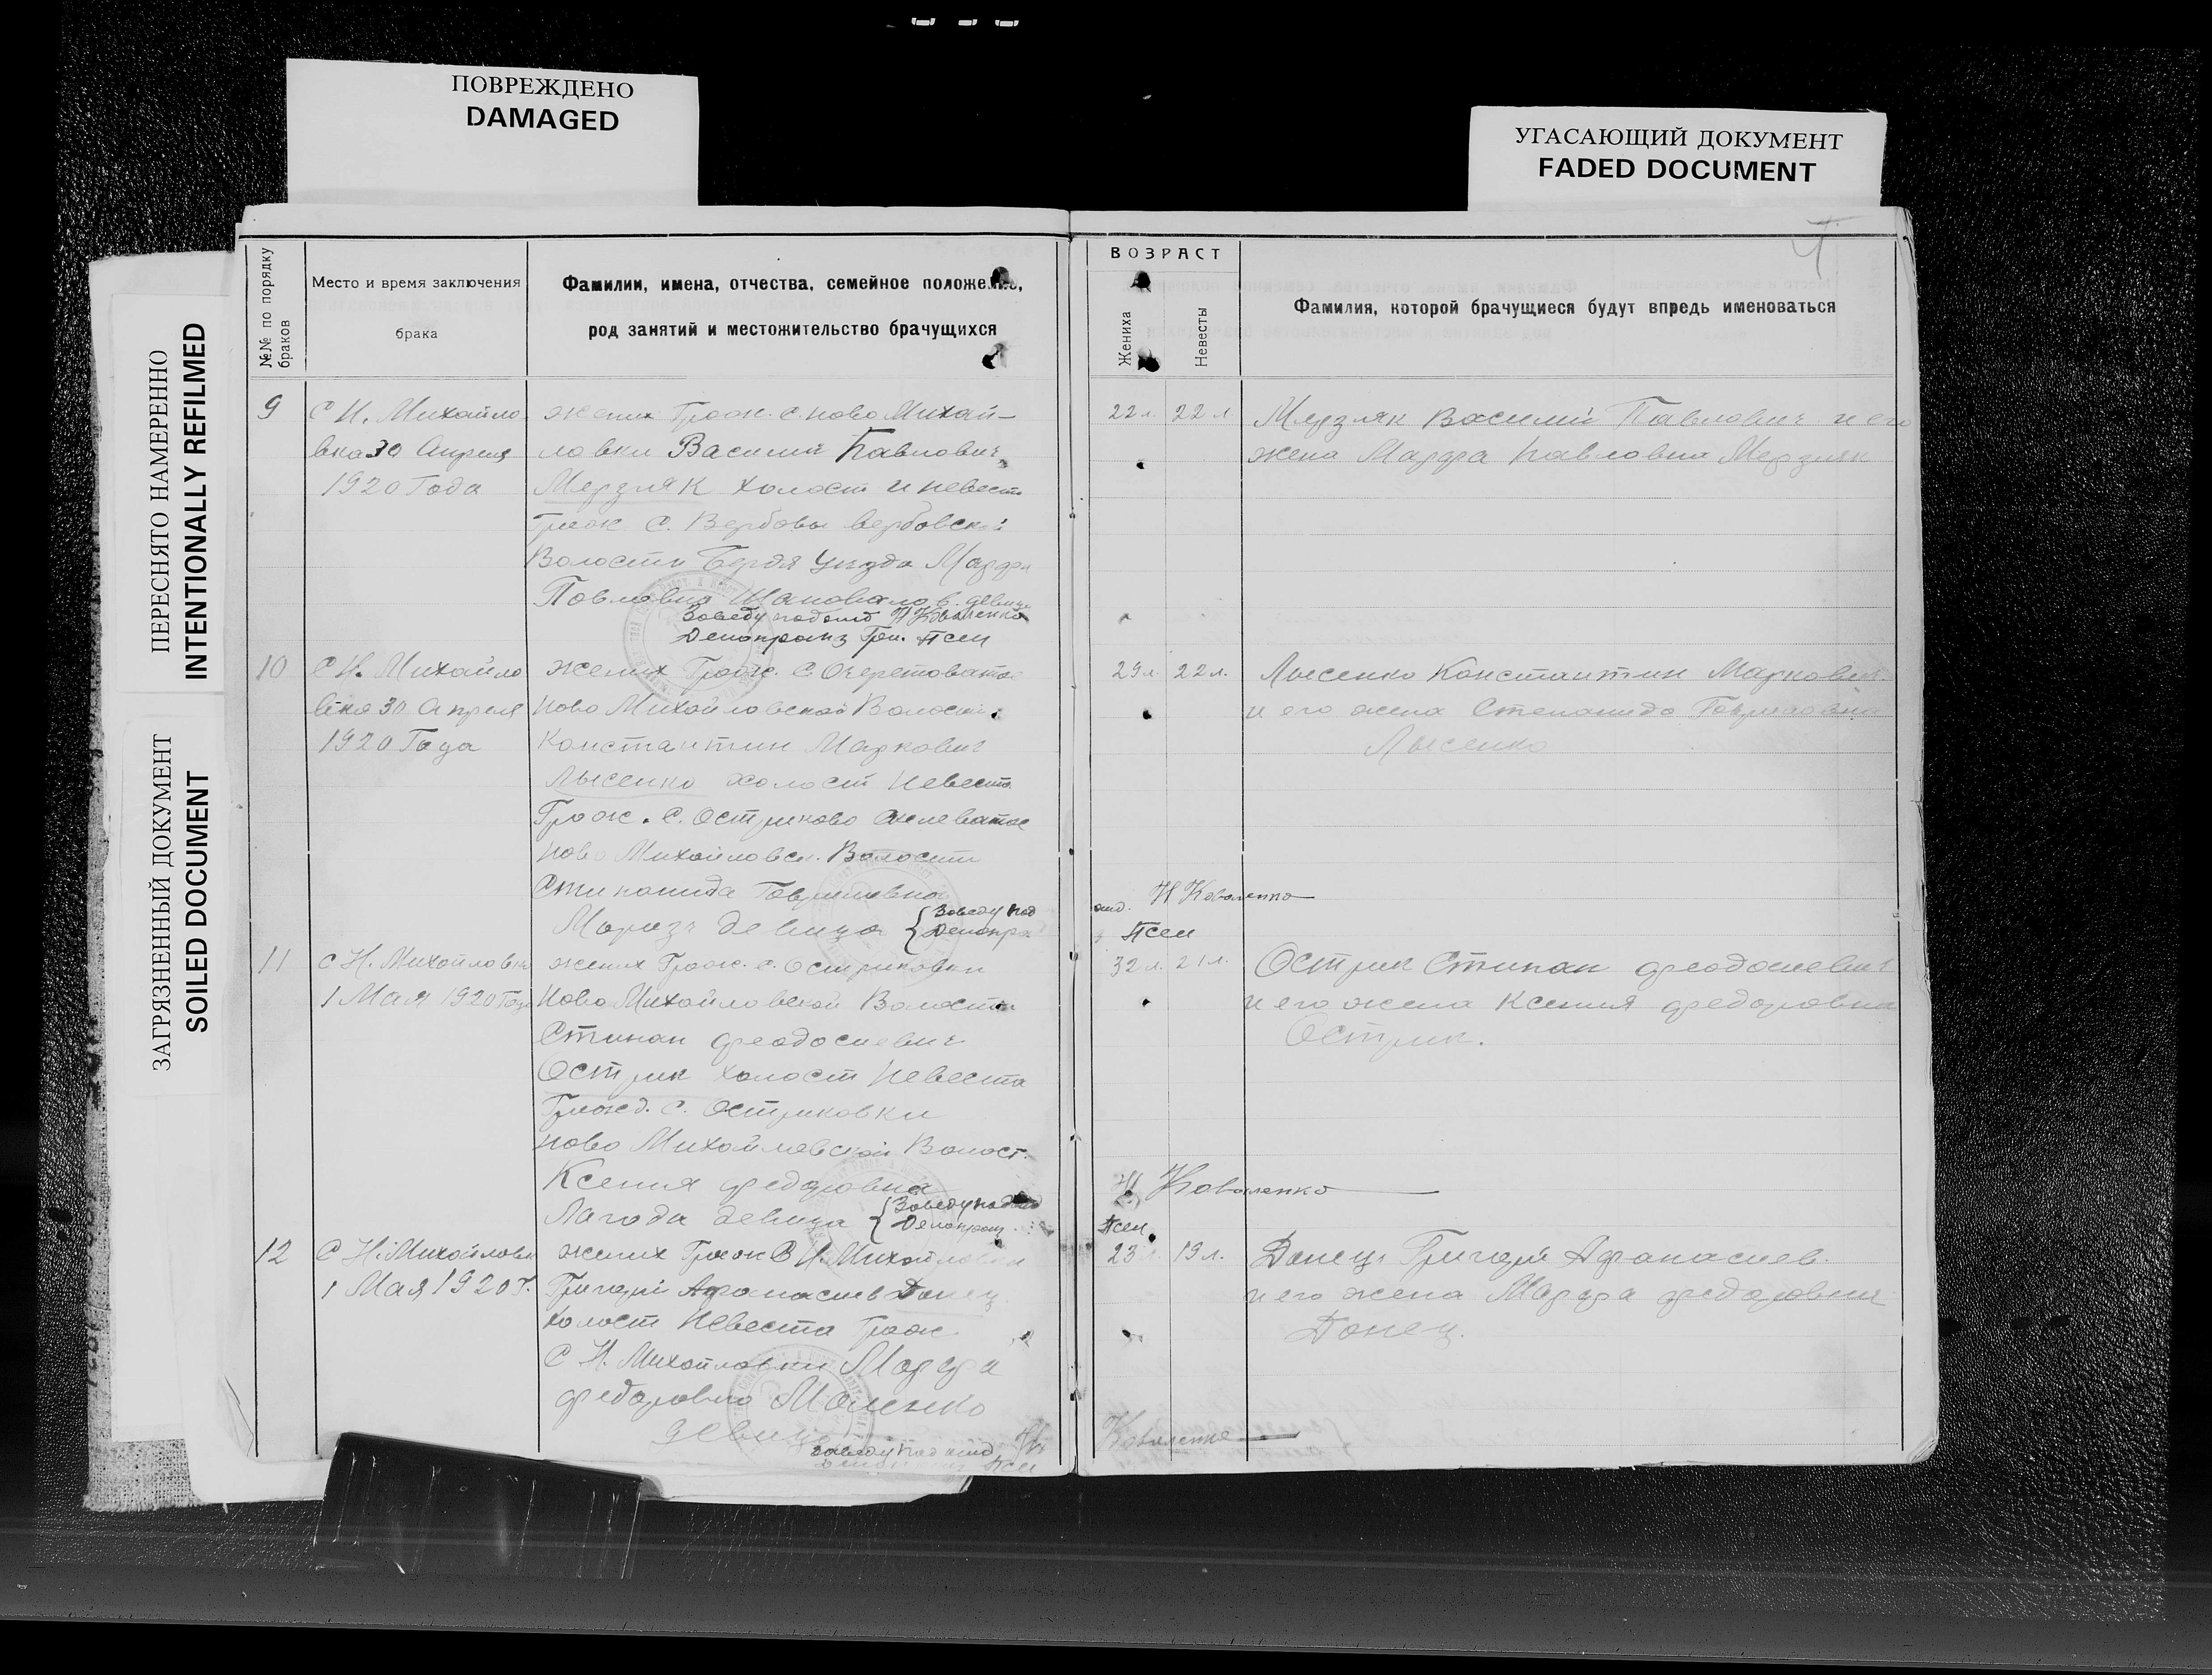 ПОВРЕЖДЕНО
DAMAGED
УГАСАЮЩИЙ ДОКУМЕНТ
FADED DOCUMENT
ПЕРЕСНЯТО НАМЕРЕННО
INTENTIONALLY REFILMED
ЗАГРЯЗНЕННЫЙ ДОКУМЕНТ
SOILED DOCUMENT
№№ по порядку
браков
Место и время заключения
брака
Фамилии, имена, отчества, семейное положение,
род занятий и местожительство брачущихся
9
С Н. Михайло
вка 30 Апреля
1920 Года
жених Граж. с. ново Михай-
ловки Василий Павлович
Мерзляк холост и невест
Граж С. Вербовы вербовской
Волости Бердя Уезда Марфа
Павловна девица
Заведу подотд Н Коваленко
Делопроиз Гри. Псеи
10
С Н. Михайло
вка 30 Апреля
1920 Года
жених Граж. С Очеретовато
Ново Михайловской Волости
Константин Маркович
Лысенко холост Невеста
Граж. С. Остриково
Ново Михайловск. Волости
Стипанида Гаврииловна
Морозъ девица { Заведу под
Делопро
11
С Н. Михайловка
1 Мая 1920 Года
жених Граж. с. Остриковки
Ново Михайловской Волости
Стипан феодосиевич
Острик холост Невеста
Гражд. С. Остриковки
ново Михайловской Волост.
Ксения федоровна
Лагода девица { Заведу подотд
Делопроиз
12
С Н. Михайловк
1 Мая 1920 г.
жених Граж В Н. Михайловки
Григорий Афанасиев Донец
холост Невеста Граж
С Н. Михайловки Марфа
федоровна
девица
Заведу под отд Н
Псеи
ВОЗРАСТ
Жениха
Невесты
Фамилия, которой брачущиеся будут впредь именоваться
22 л. 22 л.
Мерзляк Василий Павлович и его
жена Марфа Павловна Мерзляк
29 л. 22 л.
Лысенко Константин Маркович.
и его жена Степанида Гавриловна
Лысенко
отд. Н Коваленко
Псеи
32 л. 21 л.
Острик Стипан феодосиевич
и его жена Ксения федоровна
Острик.
Н Коваленко
Псеи
23 19 л.
Донец Григорий Афанасиев.
и его жена Марфа федоровна
Донец.
Коваленко